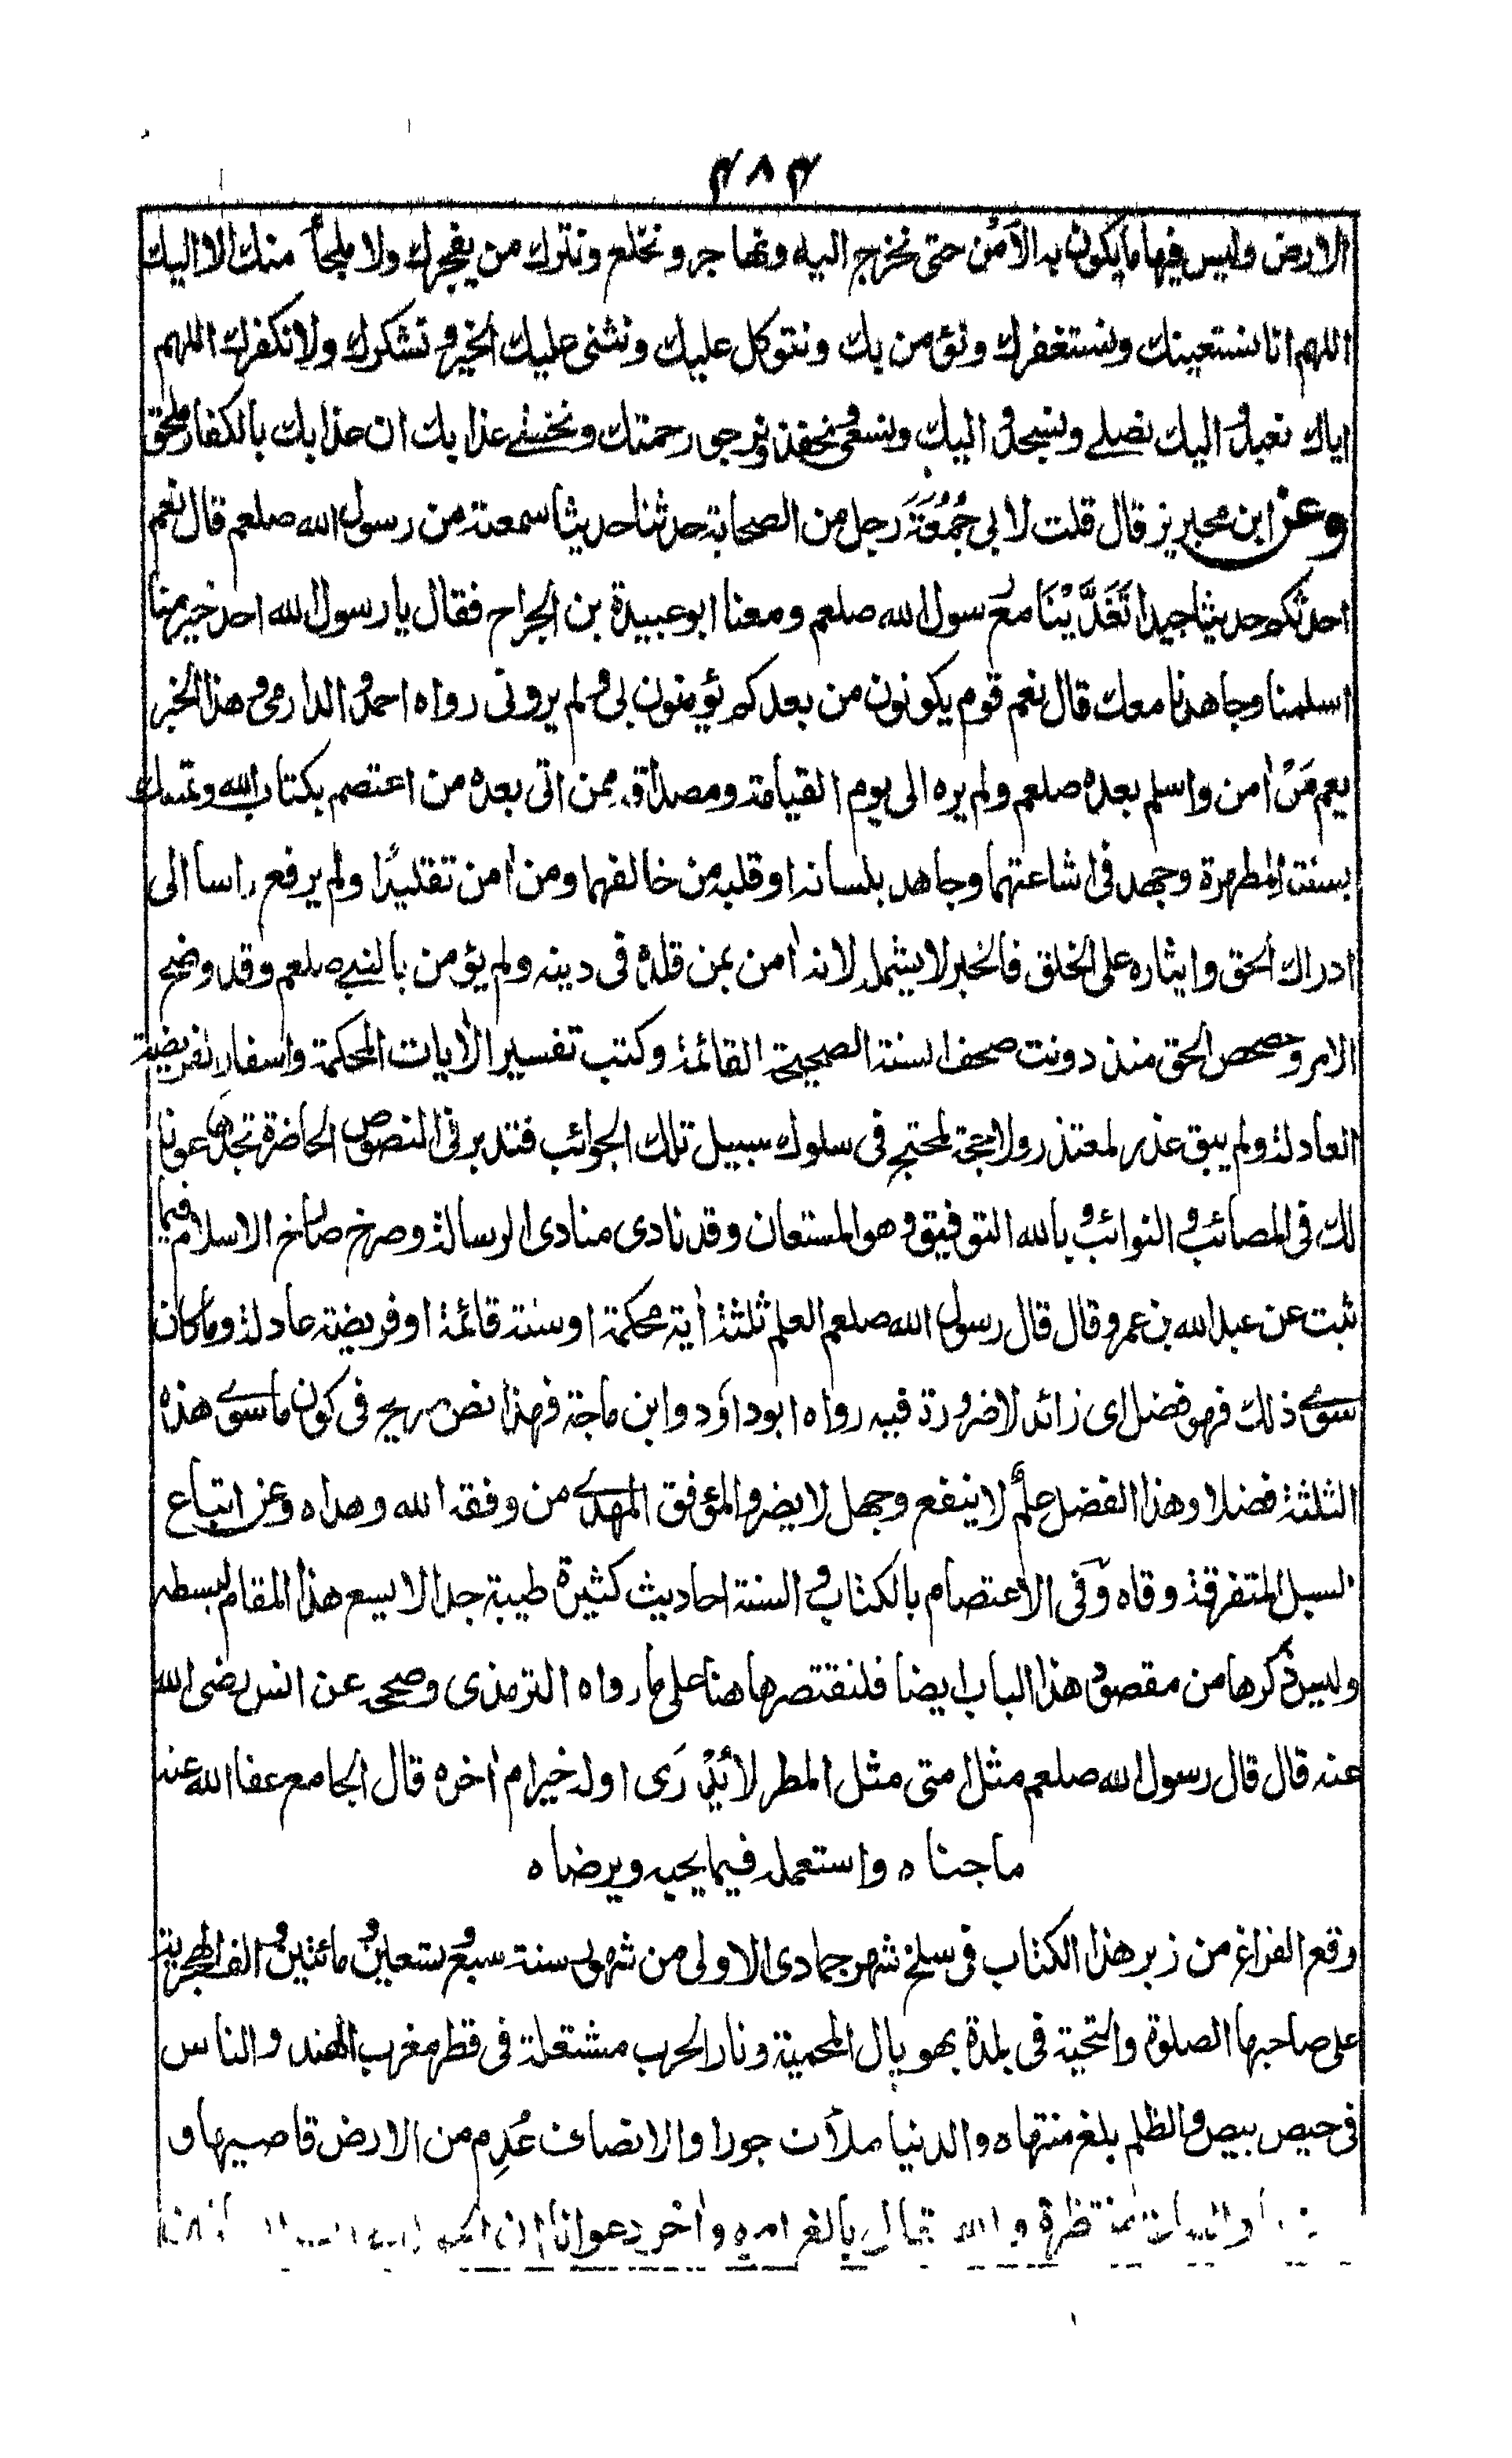 ٢٨٢
الارض وليس فيها ما يكون به الأمن حتى نخرج اليه ونهاجر ونخلع ونترك من يفجرك ولا ملجأ منك الا اليك
اللهم انا نستعينك ونستغفرك ونؤمن بك ونتوكل عليك ونثنى عليك الخير ونشكرك ولا نكفرك اللهم
اياك نعبد واليك نصلے ونسجد واليك ونسعى ونحفذ ونرجو رحمتك ونخشے عذابك ان عذابك بالكفار ملحق
وعن ابن محيريز قال قلت لابى جُمُعَةَ رجل من الصحابة حدثنا حديثا سمعته من رسول الله صلعم قال نعم
احدثكم حديثا جيدا تَغَدَّيْنَا مع رسول الله صلعم ومعنا ابو عبيدة بن الجراح فقال يا رسول الله احد خير منا
اسلمنا وجاهدنا معك قال نعم قوم يكونون من بعدكم يؤمنون بى ولم يرونى رواه احمد والدارمى وهذا الخبر
يعم مَنْ اٰمن واسلم بعده صلعم ولم يره الى يوم القيامة ومصداقه ممن اتى بعده من اعتصم بكتاب الله وتمسك
بسنته المطهرة وجهد فى اشاعتهما وجاهد بلسانه او قلبه من خالفهما ومن اٰمن تقليدًا ولم يرفع راسا الى
ادراك الحق وايثاره على الخلق فالخبر لا يشمله لانه اٰمن بمن قلده فى دينه ولم يؤمن بالنبے صلعم وقد وضح
الامر وحصحص الحق منذ دونت صحف السنة الصحيحة القائمة وكتب تفسير الاٰيات المحكمة واسفار الفريضة
العادلة ولم يبق عذر لمعتذر ولا حجة لمحتج فى سلوك سبيل تلك الجوائب فتدبر فى النصوص الحاضرة تجدها عونا
لك فى المصائب والنوائب وبالله التوفيق وهو المستعان وقد نادى منادى الرسالة وصرخ صارخ الاسلام فيما
ثبت عن عبد الله بن عمرو قال قال رسول الله صلعم العلم ثلثة اٰية محكمة او سنة قائمة او فريضة عادلة وما كان
سوے ذلك فهو فضل اى زائد لا ضرورة فيه رواه ابو داؤد وابن ماجة فهذا نص صريح فى كون ما سوے هذه
الثلثة فضلا وهذا الفضل علم لا ينفع وجهل لا يضر والمؤفق المهدے من وفقه الله وهداه وعن اتباع
السبل المتفرقة وقاه وفى الاعتصام بالكتاب والسنة احاديث كثيرة طيبة جدا لا يسع هذا المقام لبسطه
وليس ذكرها من مقصود هذا الباب ايضا فلنقتصر هاهنا على ما رواه الترمذى وصححه عن انس رضى الله
عنه قال قال رسول الله صلعم مثل امتى مثل المطر لا يُدْرَى اوله خير ام اٰخره قال الجامع عفا الله عنه
ما جناه واستعمله فيما يحبه ويرضاه
وقع الفراغ من زبر هذا الكتاب فى سلخ شهر جمادى الاولى من شهور سنة سبع وتسعين ومائتين والف الهجرية
على صاحبها الصلوة والتحية فى بلدة بهوپال المحمية ونار الحرب مشتعلة فى قطر مغرب الهند والناس
فى حيص بيص والظلم بلغ منتهاه والدنيا ملأت جورا والانصاف عُدِم من الارض قاصيها و
منتظرة والله تعالى بالغ امره واٰخر دعوانا ان الحمد